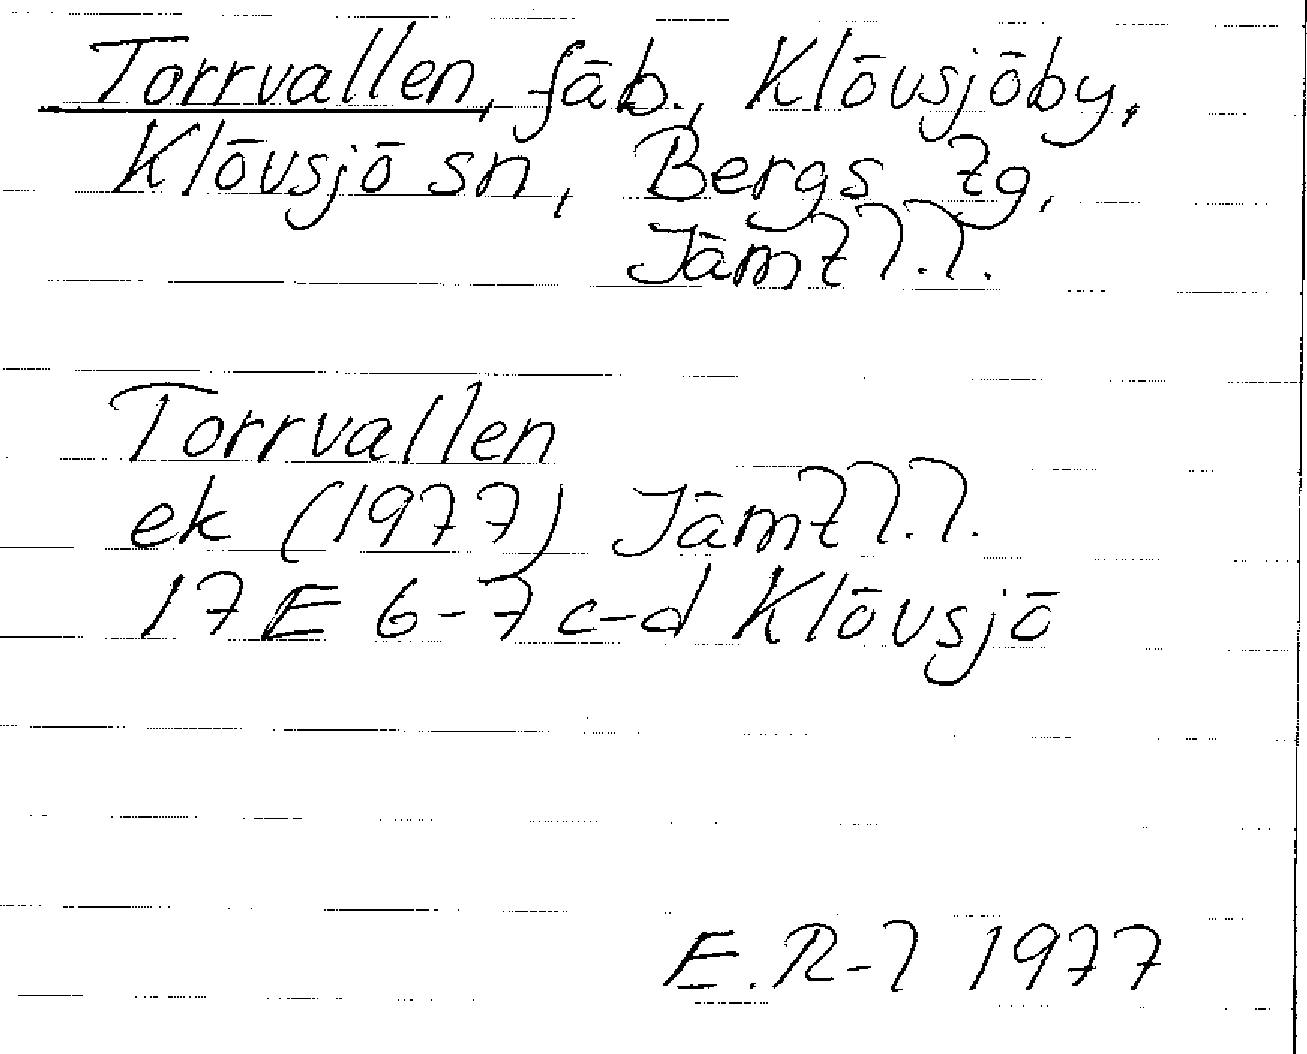 Torrvallen, fäb., Klövsjöby,
Klövsjö sn, Bergs tg,
Jämtl.l.
Torrvallen
ek (1977) Jämtl.l.
17E 6-7c-d Klövsjö
E.R-l 1977